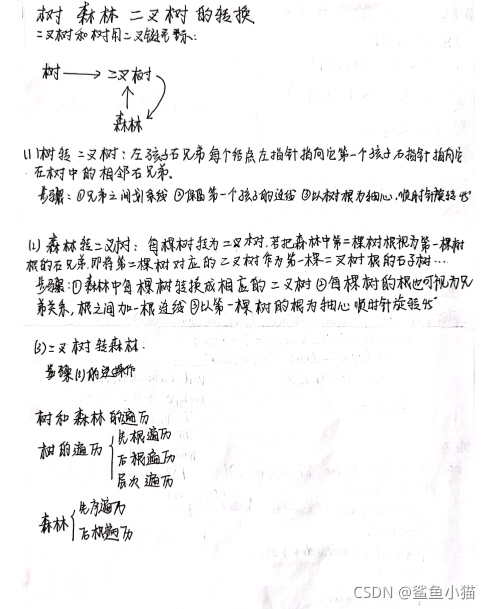 树 森林 二叉树的转换
二叉树和树用二叉链表
树 → 二叉树
森林
(1)树转二叉树：左孩子右兄弟 每个结点左指针指向它第一个孩子右指针指向它
在树中的相邻右兄弟。
步骤：①兄弟之间划条线 ②保留第一个孩子的连线 ③以树根为轴心，顺时针旋转45°
(2) 森林转二叉树：每棵树转为二叉树，若把森林中第二棵树根视为第一棵树
根的右兄弟，即将第二棵树对应的二叉树作为第一棵二叉树根的右子树…
步骤：①森林中每棵树转换成相应的二叉树 ②每棵树的根也可视为兄
弟关系，根之间加一根连线 ③以第一棵树的根为轴心顺时针旋转45°
(3)二叉树转森林：
步骤(2)的逆操作
树和森林的遍历
树的遍历
先根遍历
后根遍历
层次遍历
森林
先序遍历
后根遍历
CSDN @鲨鱼小猫